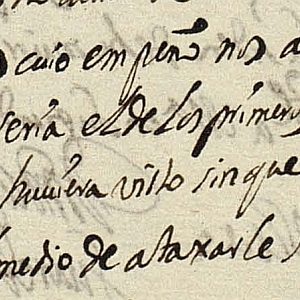 cuio empeño nos a
sería el de los primero
huuiera visto sin que
medio de ataxarle